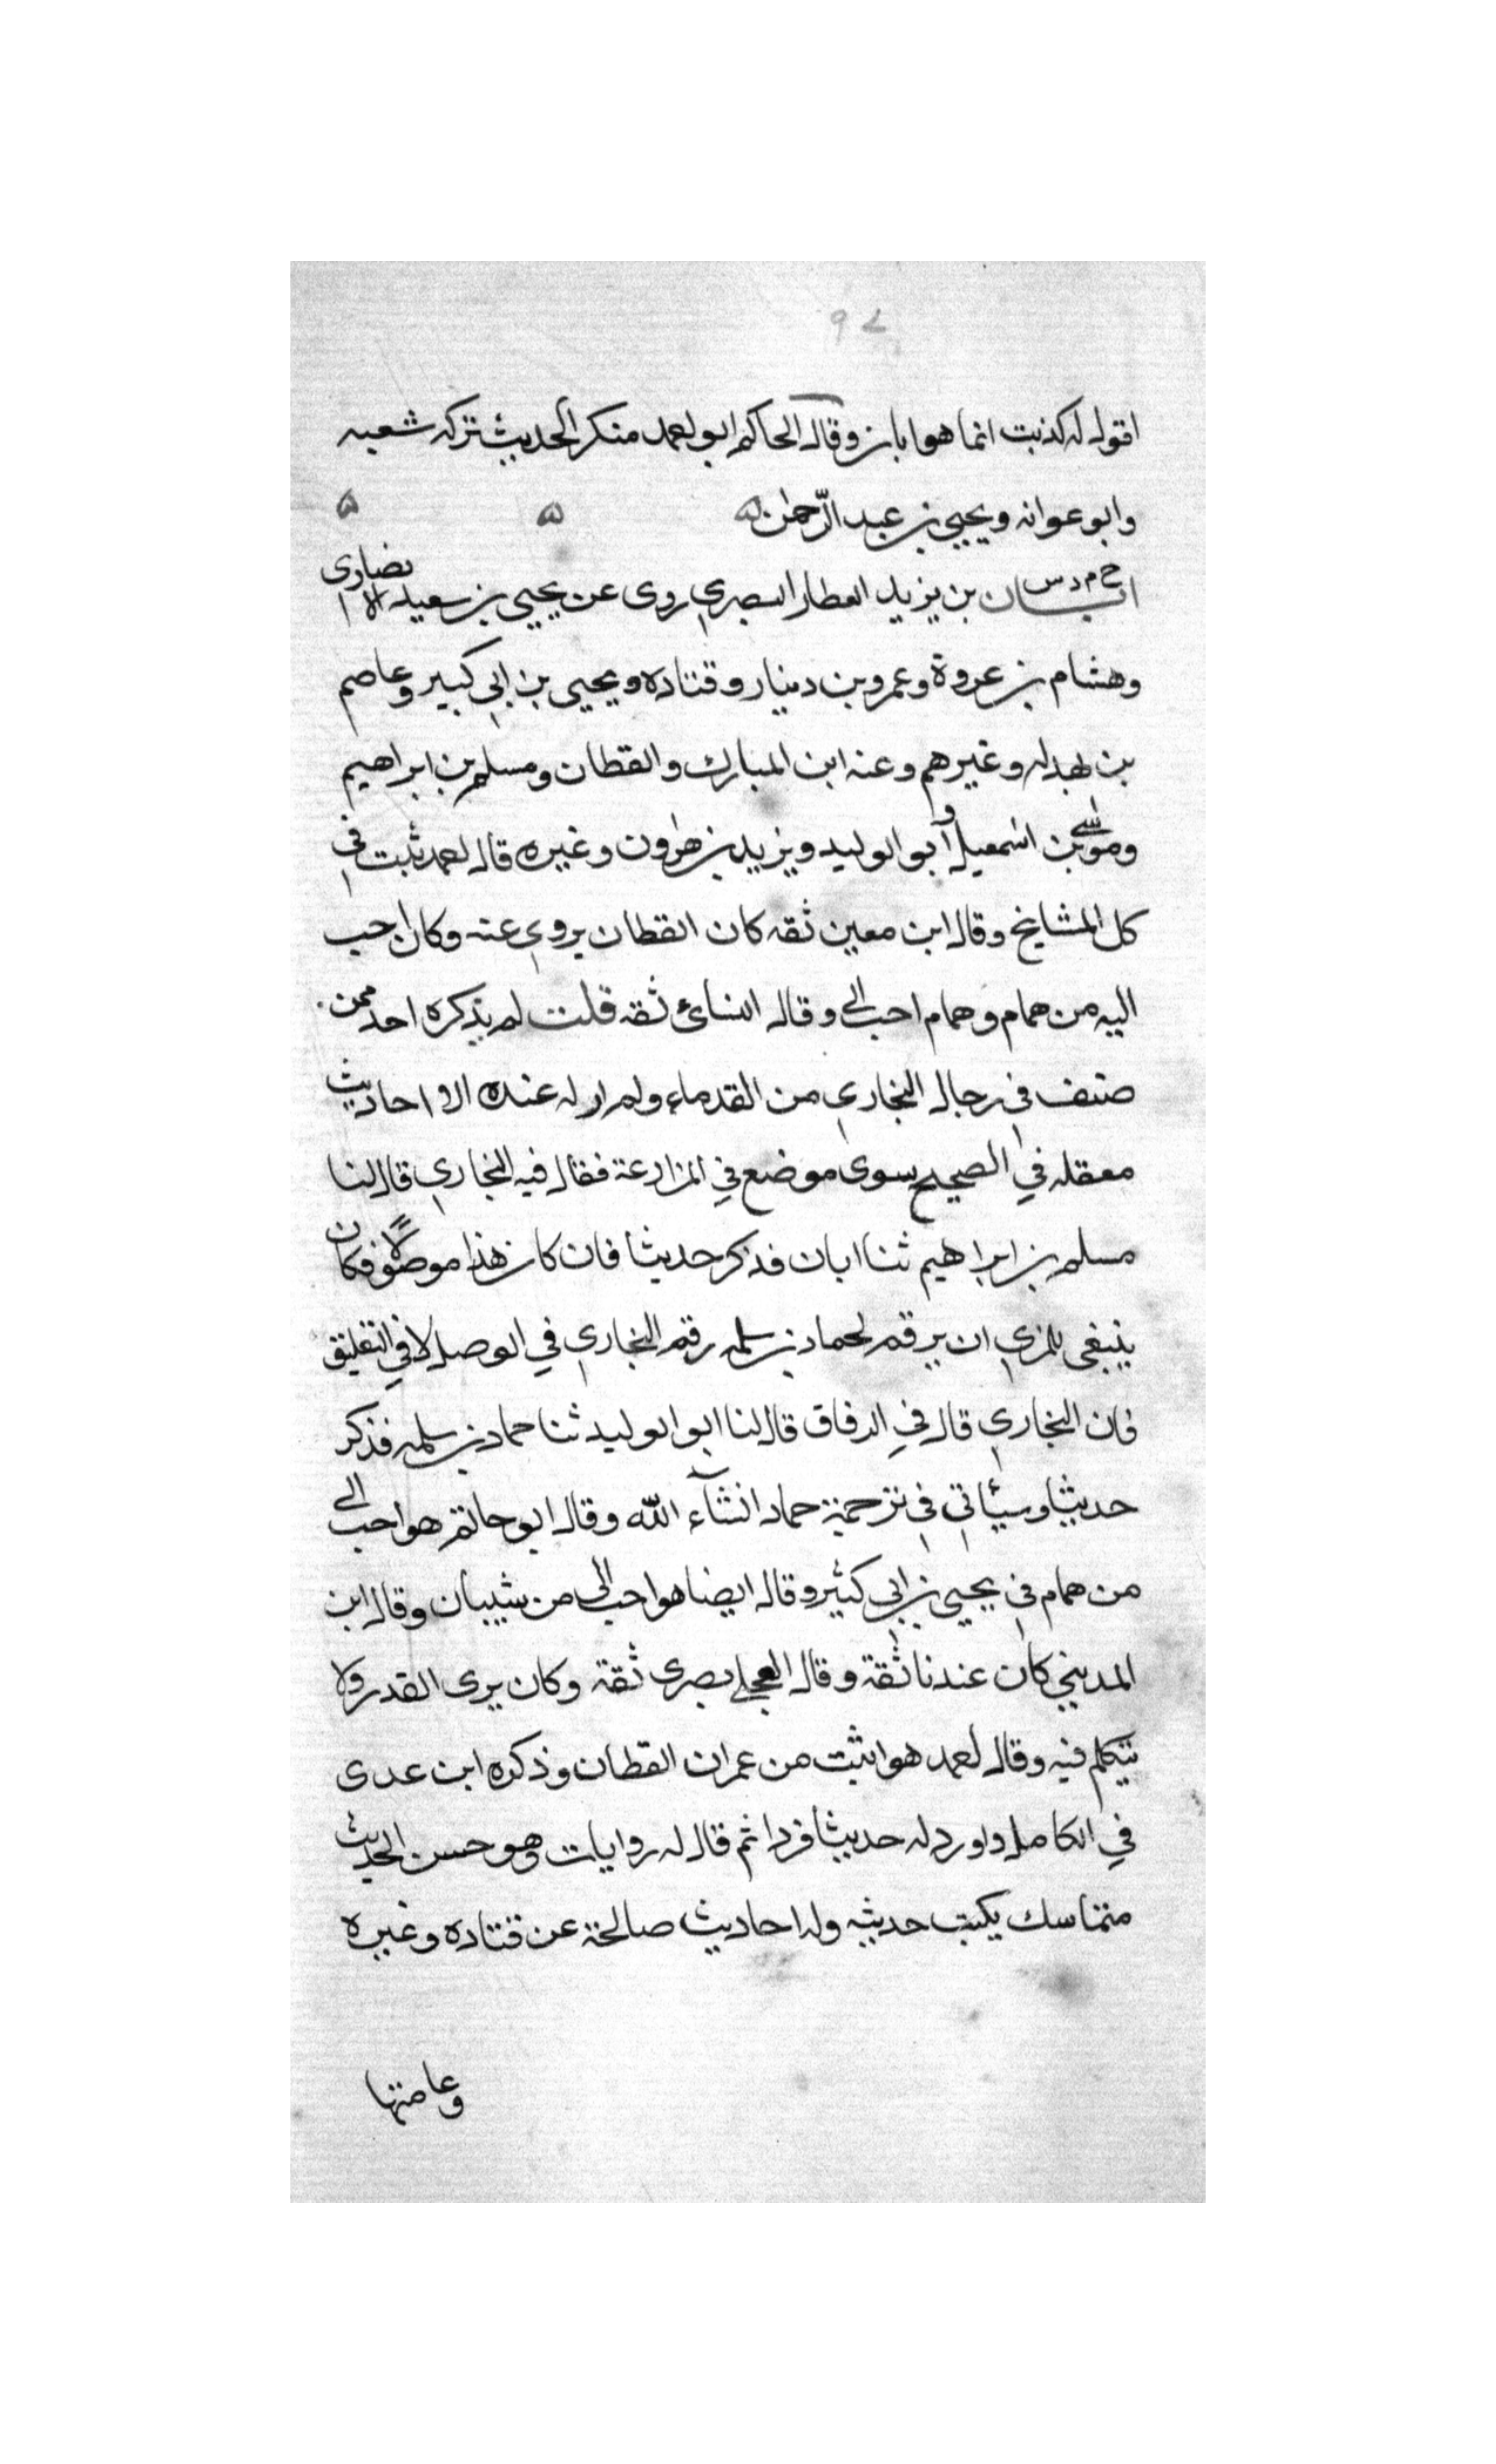 ٩٢
اقول له كذبت انما هو ابان وقال الحاكم ابو احمد منكر الحديث تركه شعبه
وابو عوانه ويحيى بن عبد الرحمن ه ه ه
خ م د س ابان بن يزيد العطار البصري روى عن يحيى بن سعيد الانصارى
وهشام بن عروة وعمرو بن دينار وقتاده ويحيى بن ابي كبير وعاصم
بن بهدله وغيرهم وعنه ابن المبارك والقطان ومسلم بن ابراهيم
وموسى بن اسمعيل وابو الوليد ويزيد بن هرون وغيره قال احمد ثبت في
كل المشايخ وقال ابن معين ثقه كان القطان يروي عنه وكان احب
اليه من همام وهمام احب الي وقال النسائ ثقه قلت لم يذكره احد ممن
صنف في رجال البخاري من القدماء ولم ار له عنده الا احاديث
معقله في الصحيح سوى موضع في المزارعة فقال فيه البخاري قال لنا
مسلم بن ابراهيم ثنا ابان فذكر حديثا فان كان هذا موصولا فكان
ينبغى للمزي ان يرقم لحماد بن سلمه رقم البخاري في الوصل لا في التقليق
فان البخاري قال في الرقاق قال لنا ابو الوليد ثنا حماد بن سلمه فذكر
حديثا وسيأتي في ترجمة حماد انشآء الله وقال ابو حاتم هو احب الي
من همام في يحيى بن ابي كثير وقال ايضا هو احب الي من شيبان وقال ابن
المديني كان عندنا ثقة وقال العجلي بصرى ثقة وكان يرى القدر ولا
يتكلم فيه وقال احمد هو اثبت من عمران القطان وذكره ابن عدى
في الكامل واورد له حديثا فردا ثم قال له روايات وهو حسن الحديث
متماسك يكتب حديثه وله احاديث صالحة عن قتاده وغيره
وعامتها